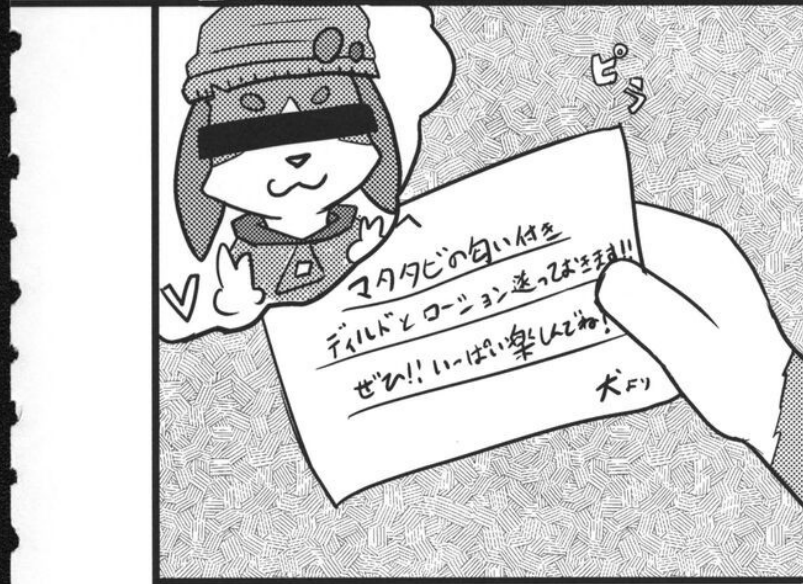 ピラ
マタタビの匂い付き
ディルドとローション送っておきます!!
ぜひ!!いーっぱい楽しんでね!
犬より